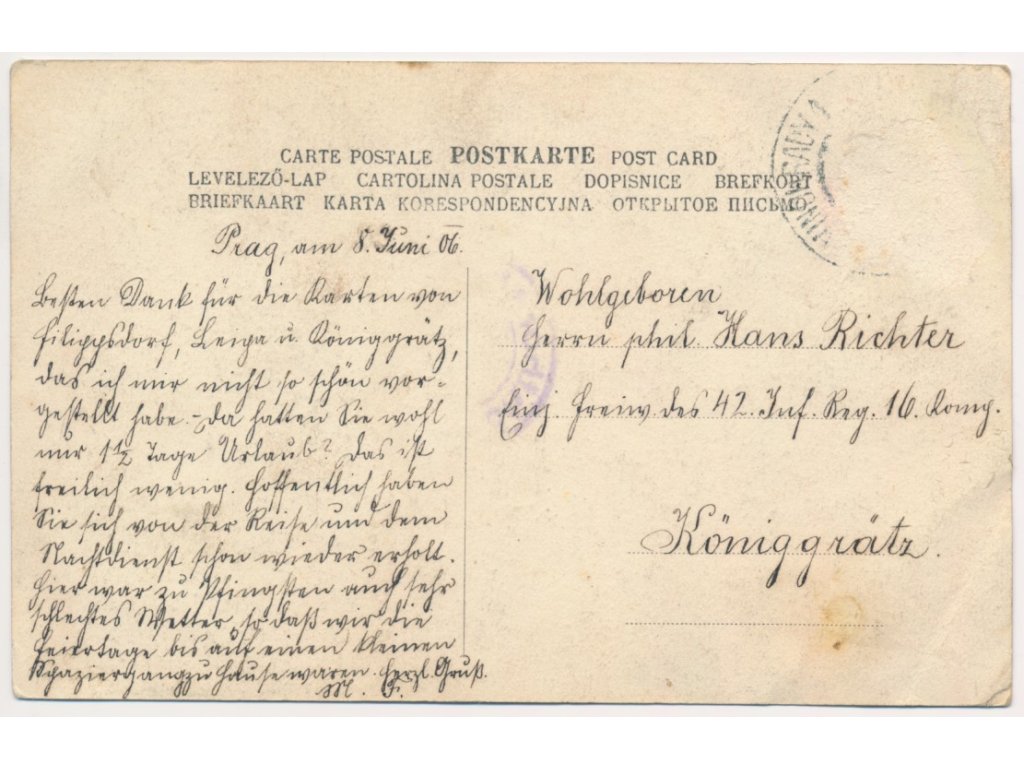 CARTE POSTALE POSTKARTE POST CARD
LEVELEZŐ-LAP CARTOLINA POSTALE DOPISNICE BREFKORT
BRIEFKAART KARTA KORESPONDENCYJNA ОТКРЫТОЕ ПИСЬМО
Prag, am 8. Juni 06.
Besten Dank für die Karten von
Filippsdorf, Leipa u. Königgrätz,
das ich mir nicht so schön vor-
gestellt habe. - Da hatten Sie wohl
nur 1 1/2 Tage Urlaub? Das ist
freilich wenig. Hoffentlich haben
Sie sich von der Reise und dem
Nachtdienst schon wieder erholt.
Hier war zu Pfingsten auch sehr
schlechtes Wetter, so daß wir die
Feiertage bis auf einen kleinen
Spaziergang zu Hause waren. Herzl. Gruß.
M. F.
Wohlgeboren
Herrn phil. Hans Richter
Einj. Freiw. des 42. Inf. Reg. 16. Komp.
Königgrätz.